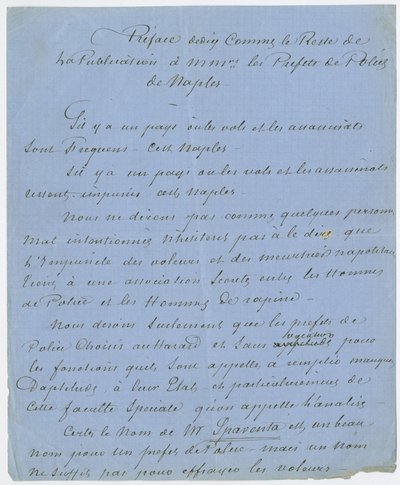 Préface dediée comme le Reste de
La Publication à MMrs les Prefets de Police
de Naples -
S'il y a un pays ou les vols et les assassinats
sont Frequens - c'est Naples -
S'il y a un pays ou les vols et les assassinats
restent impunis c'est Naples -
Nous ne dirons pas comme quelques personnes
mal intentionnés n'hesitent pas à le dire que
L'Impunité des voleurs et des meurtriers napolitains
tient à une association Secrete entre les Hommes
de Police et les Hommes de rapine -
Nous dirons Seulement que les prefets de
Police choisis au Hazard et Sans vocation pour
les fonctions qu'ils sont appellés a remplir manquent
D'aptitude à leur Etat et particulierement de
cette faculté Speciale qu'on appelle l'analise -
Certes le nom de Mr Spaventa est un beau
nom pour un prefet de Police - mais un nom
ne suffit pas pour effrayer les voleurs -